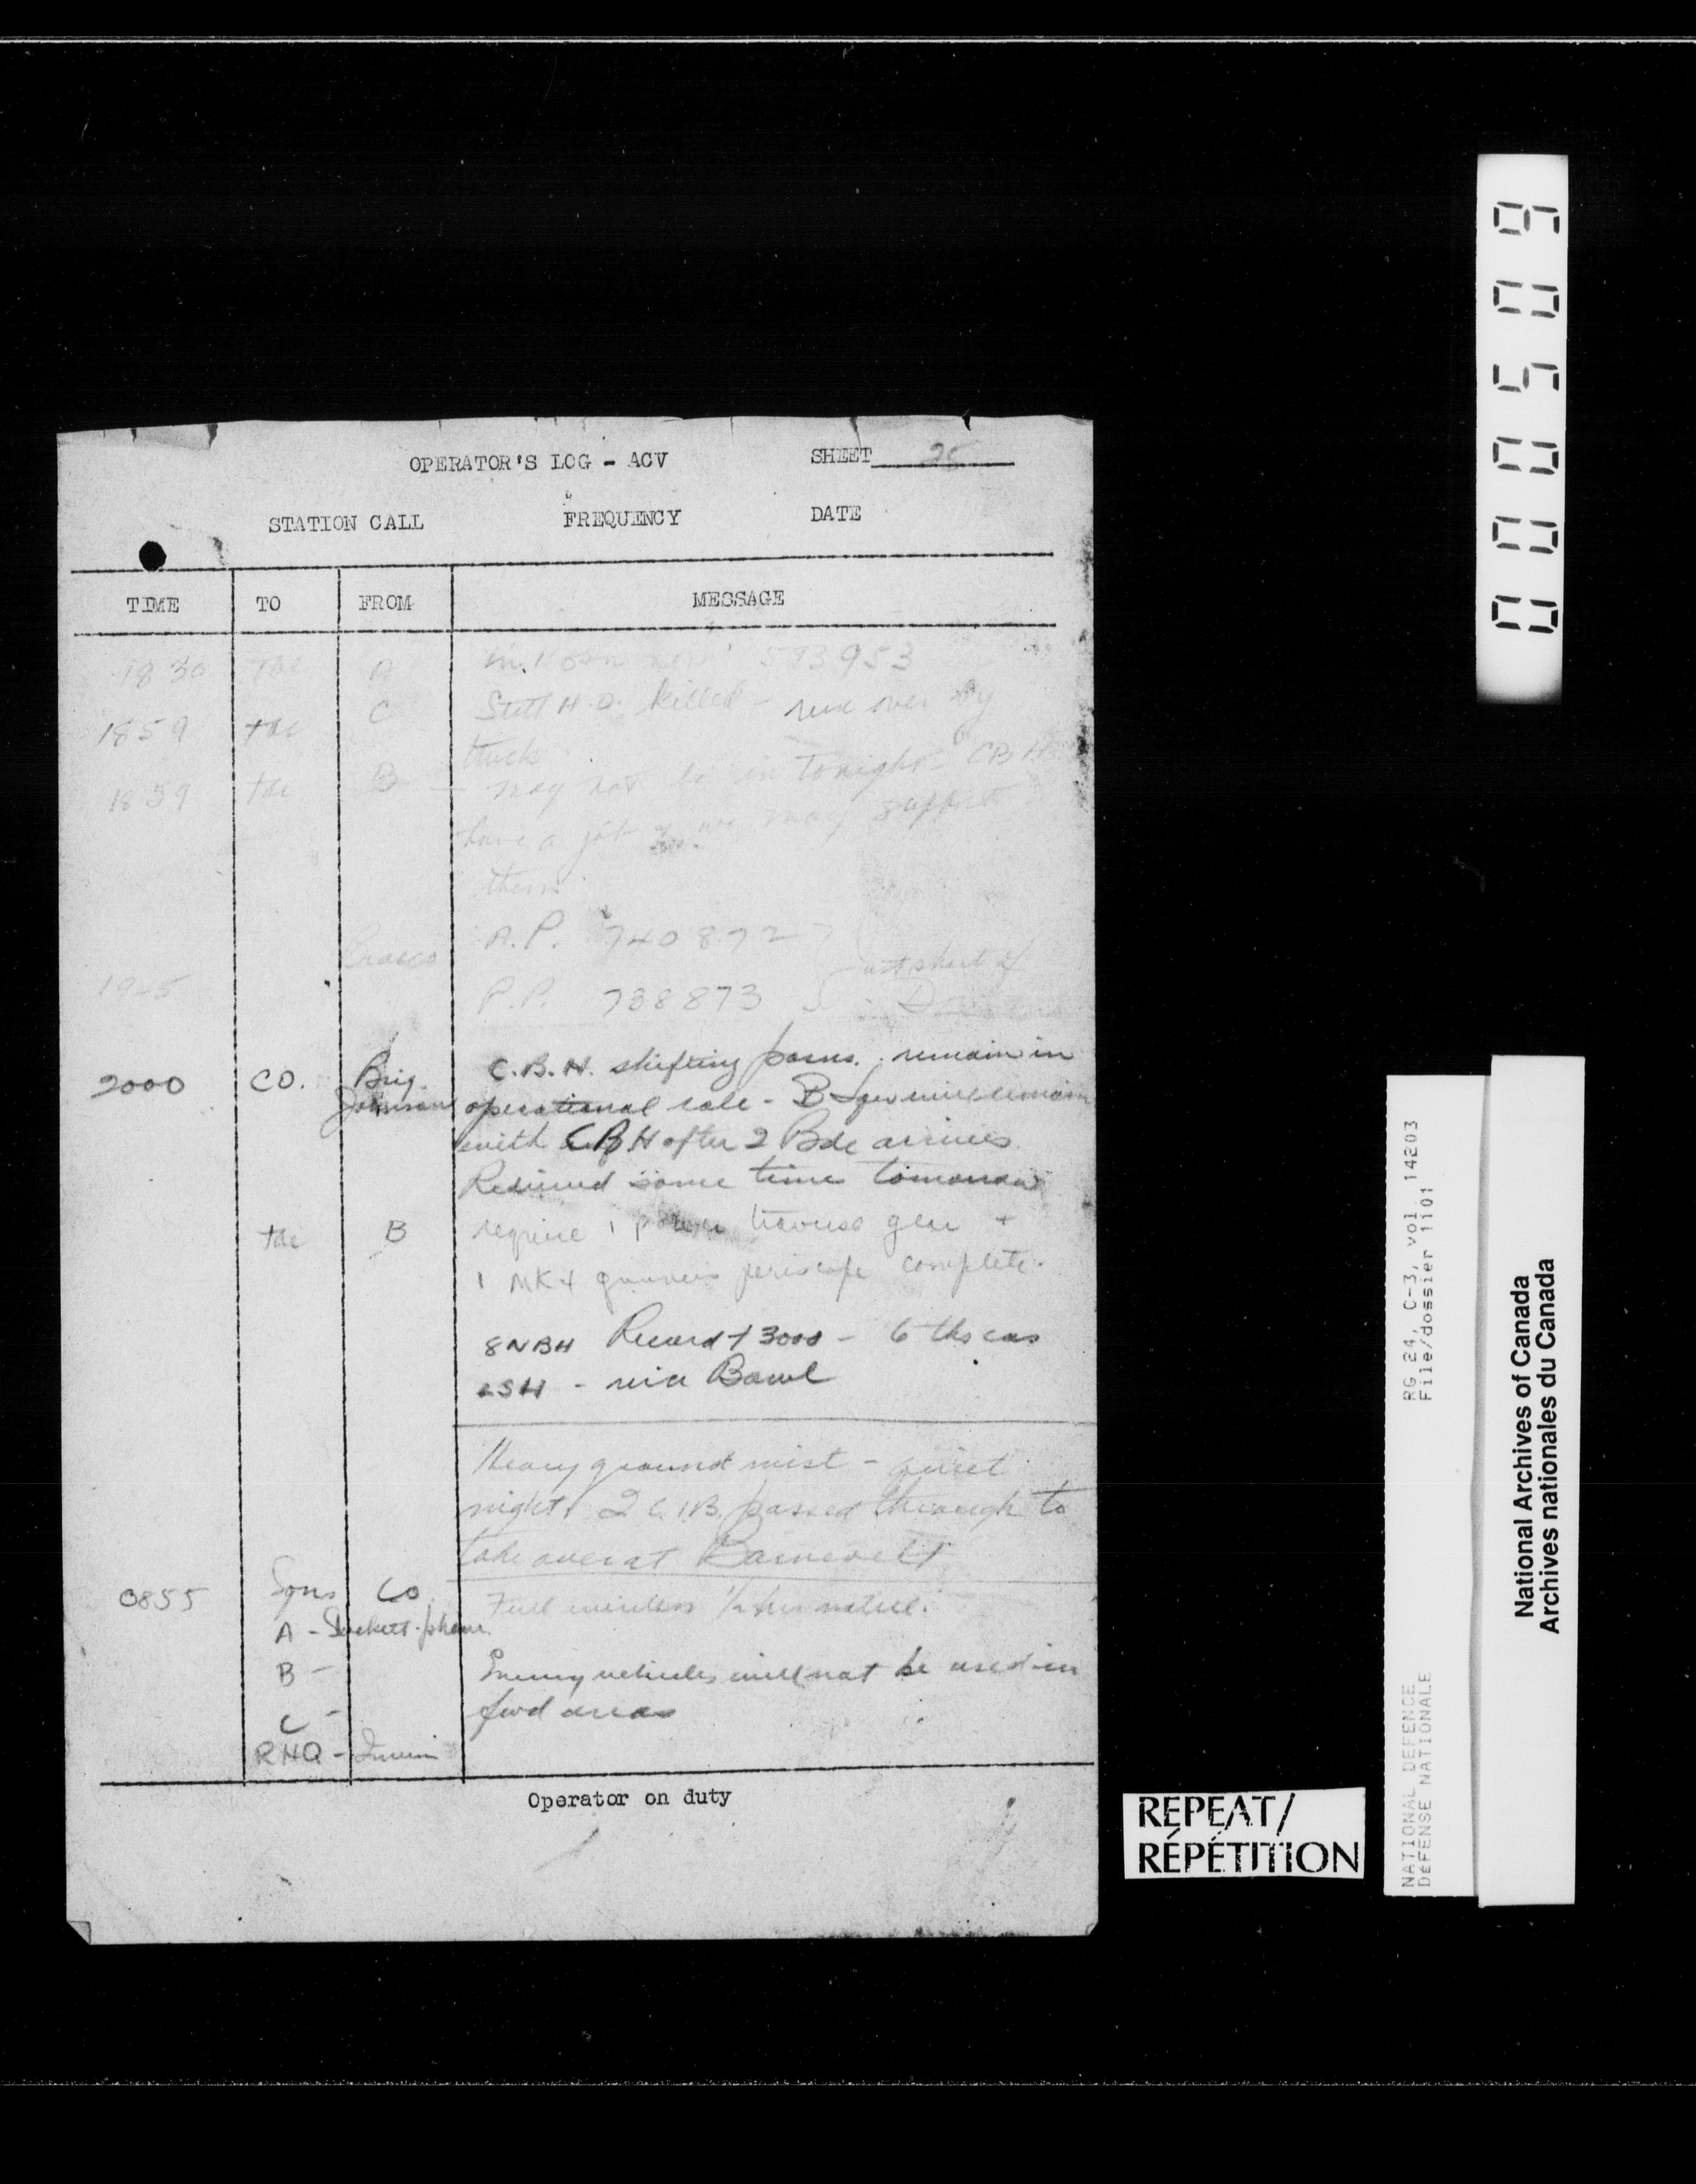 OPERATOR'S LOG - ACV SHEET 25
STATION CALL FREQUENCY DATE
TIME TO FROM MESSAGE
1830 tac A 593953
1859 tac C killed - run over by
truck
1859 tac B - may not be in tonight - CBH
have a job & we may support
them
A.P. 740872
1925
P.P. 738873
2000 CO. Brig. C.B.H. shifting posns. remain in
Johnson operational role - B Sqn will remain
with CBH after 2 Bde arrives
some time tomorrow
tac B require 1 power traverse gear +
1 MK4 gunners periscope complete.
8NBH Record + 3000 - 6 tks cas
LSH - nil
Heavy ground mist - quiet
night. 2 C.I.B. passed through to
take over at
0855 Sqns CO Full wireless 1/2 hr
A - phone
B - Enemy vehicles will not be used in
C - fwd areas
RHQ - Irwin
Operator on duty
000509
REPEAT/
RÉPÉTITION
RG 24, C-3, vol. 14203
File/dossier 1101
NATIONAL DEFENCE
DÉFENSE NATIONALE
National Archives of Canada
Archives nationales du Canada